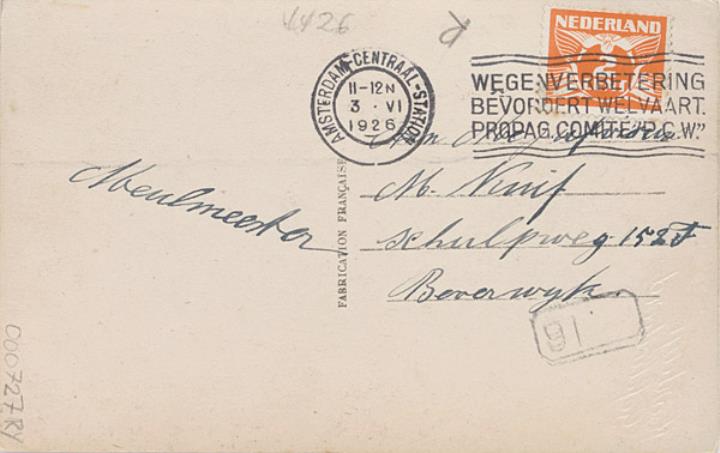 4426
NEDERLAND
2
AMSTERDAM-CENTRAAL-STATION
11-12N
3 · VI
1926
WEGENVERBETERING
BEVORDERT WELVAART.
PROPAG. COMITÉ "P.C.W."
Aan Mej
M.
Schulpweg 152
Beverwyk.
Meulmeester
FABRICATION FRANÇAISE
91
000727RY